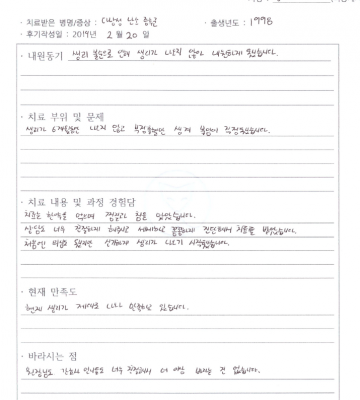 · 치료받은 병명/증상 : 다낭성 난소 증후군
· 출생년도 : 1998
· 후기작성일 : 2019년 2월 20일
· 내원동기 생리 불순으로 인해 생리가 나오지 않아 내원하게 됐습니다.
· 치료 부위 및 문제
생리가 6개월동안 나오지 않고 부정출혈만 생겨 걱정됐습니다.
· 치료 내용 및 과정 경험담
치료는 한약을 먹으며 찜질과 침을 맞았습니다.
상담도 너무 친절하게 해주시고 세세하고 꼼꼼하게 진단해서 치료를 받았습니다.
처음엔 신기하게 생리가 나오기 시작했습니다.
· 현재 만족도
현재 생리가 제대로 나와 만족하고 있습니다.
· 바라시는 점
원장님도 간호사 언니들도 너무 친절해서 더 이상 바라는 건 없습니다.